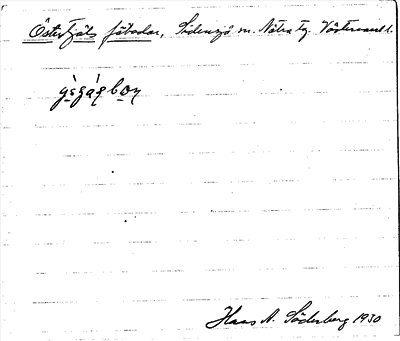 Österfjäls fäbodar, Sidensjö sn. Nätra tg. Västernorrl.
Hans A. Söderberg 1930